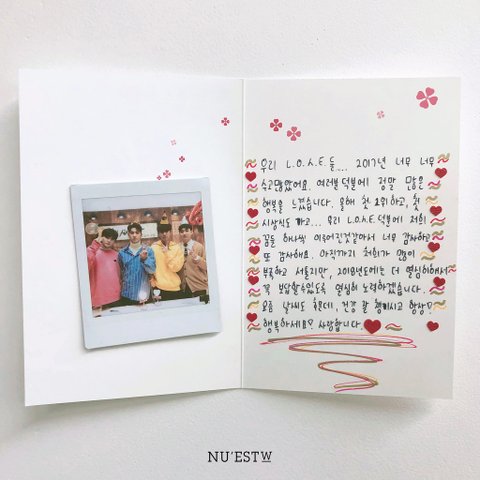 우리 L.O.Λ.E.들... 2017년 너무 너무
수고많았어요. 여러분 덕분에 정말 많은
행복을 느꼈습니다. 올해 첫 1위하고, 첫
시상식도 가고... 우리 L.O.Λ.E 덕분에 저희
꿈들 하나씩 이루어진것같아서 너무 감사하고
또 감사해요. 아직까지 저희가 많이
부족하고 서툴지만, 2018년도에는 더 열심히해서
꼭 보답할수있도록 열심히 노력하겠습니다.
요즘 날씨도 추운데, 건강 잘 챙기시고 항상
행복하세요! 사랑합니다.
NU'EST W